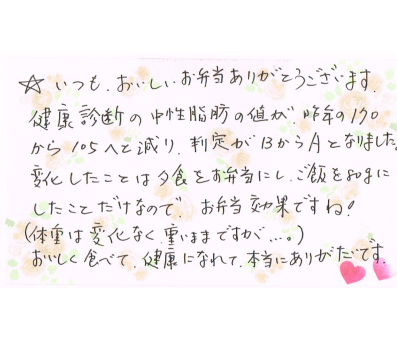 ☆いつも、おいしいお弁当ありがとうございます。
健康診断の中性脂肪の値が、昨年の170
から105へと減り、判定がBからAとなりました。
変化したことは夕食をお弁当にし、ご飯を80gに
したことだけなので、お弁当効果ですね!
(体重は変化なく、重いままですが…。)
おいしく食べて、健康になれて、本当にありがたいです。